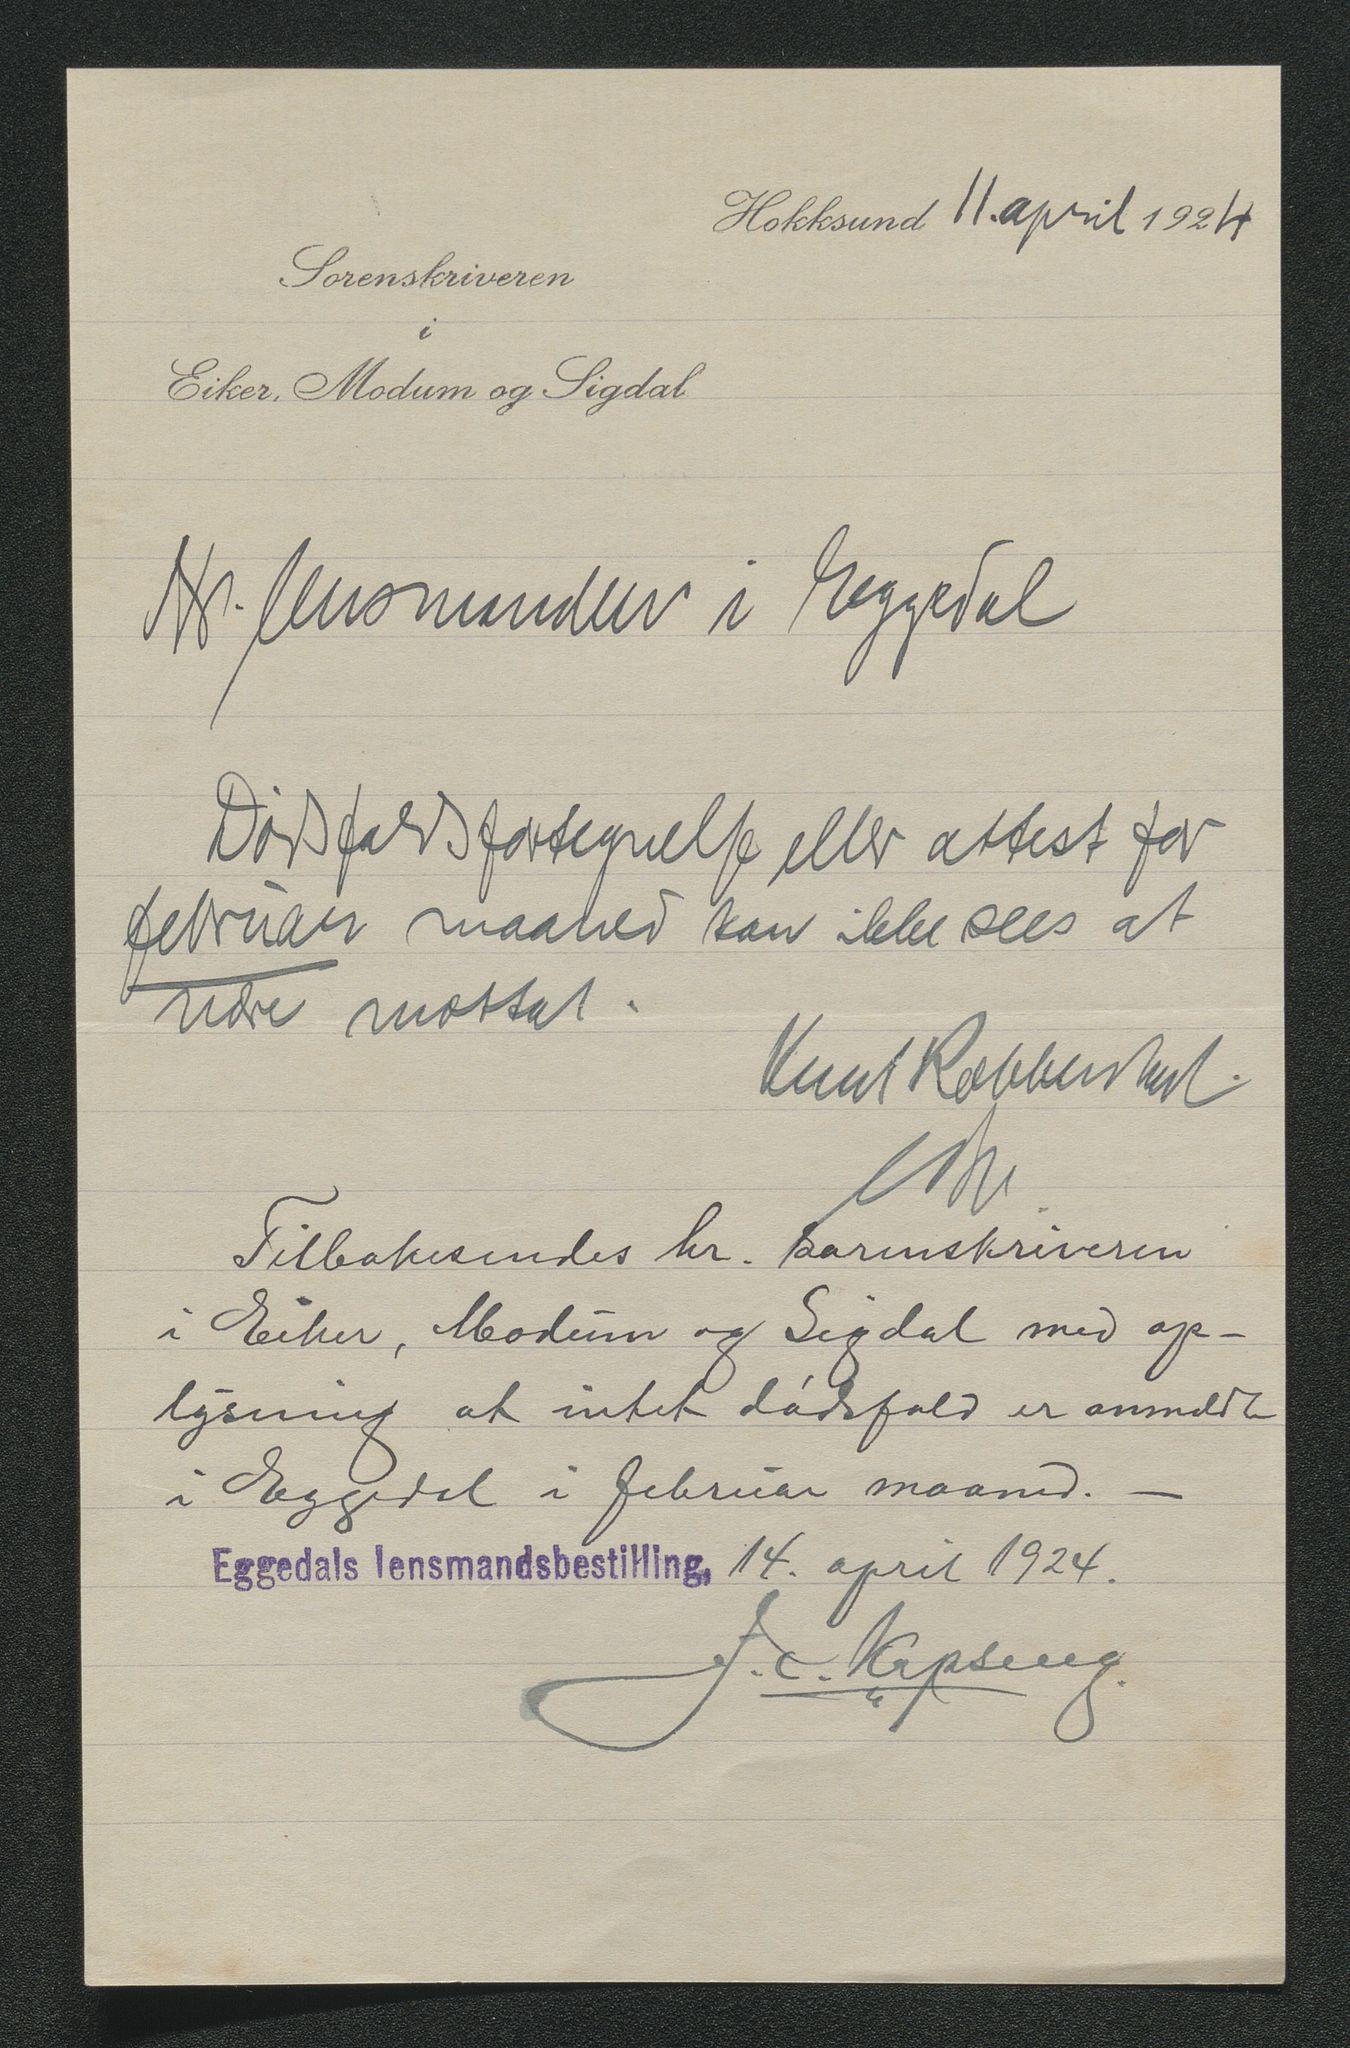 Hokksund 11. april 1924
Sorenskriveren
i
Eiker, Modum og Sigdal
Hr. lensmanden i Eggedal
Dødsfaldsfortegnelse eller attest for
februar maaned kan ikke sees at
være mottat.
Knut Robberstad.
Tilbakesendes hr. sorenskriveren
i Eiker, Modum og Sigdal med op-
lysning at intet dødsfald er anmeldt
i Eggedal i februar maaned. —
Eggedals lensmandsbestilling, 14. april 1924.
J. C.